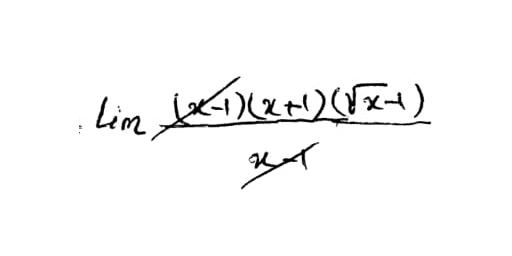 lim (x-1)(x+1)(√x-1)
x-1